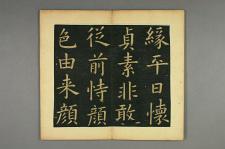 緣平日懷
貞素非敢
從前恃顔
色由来顔